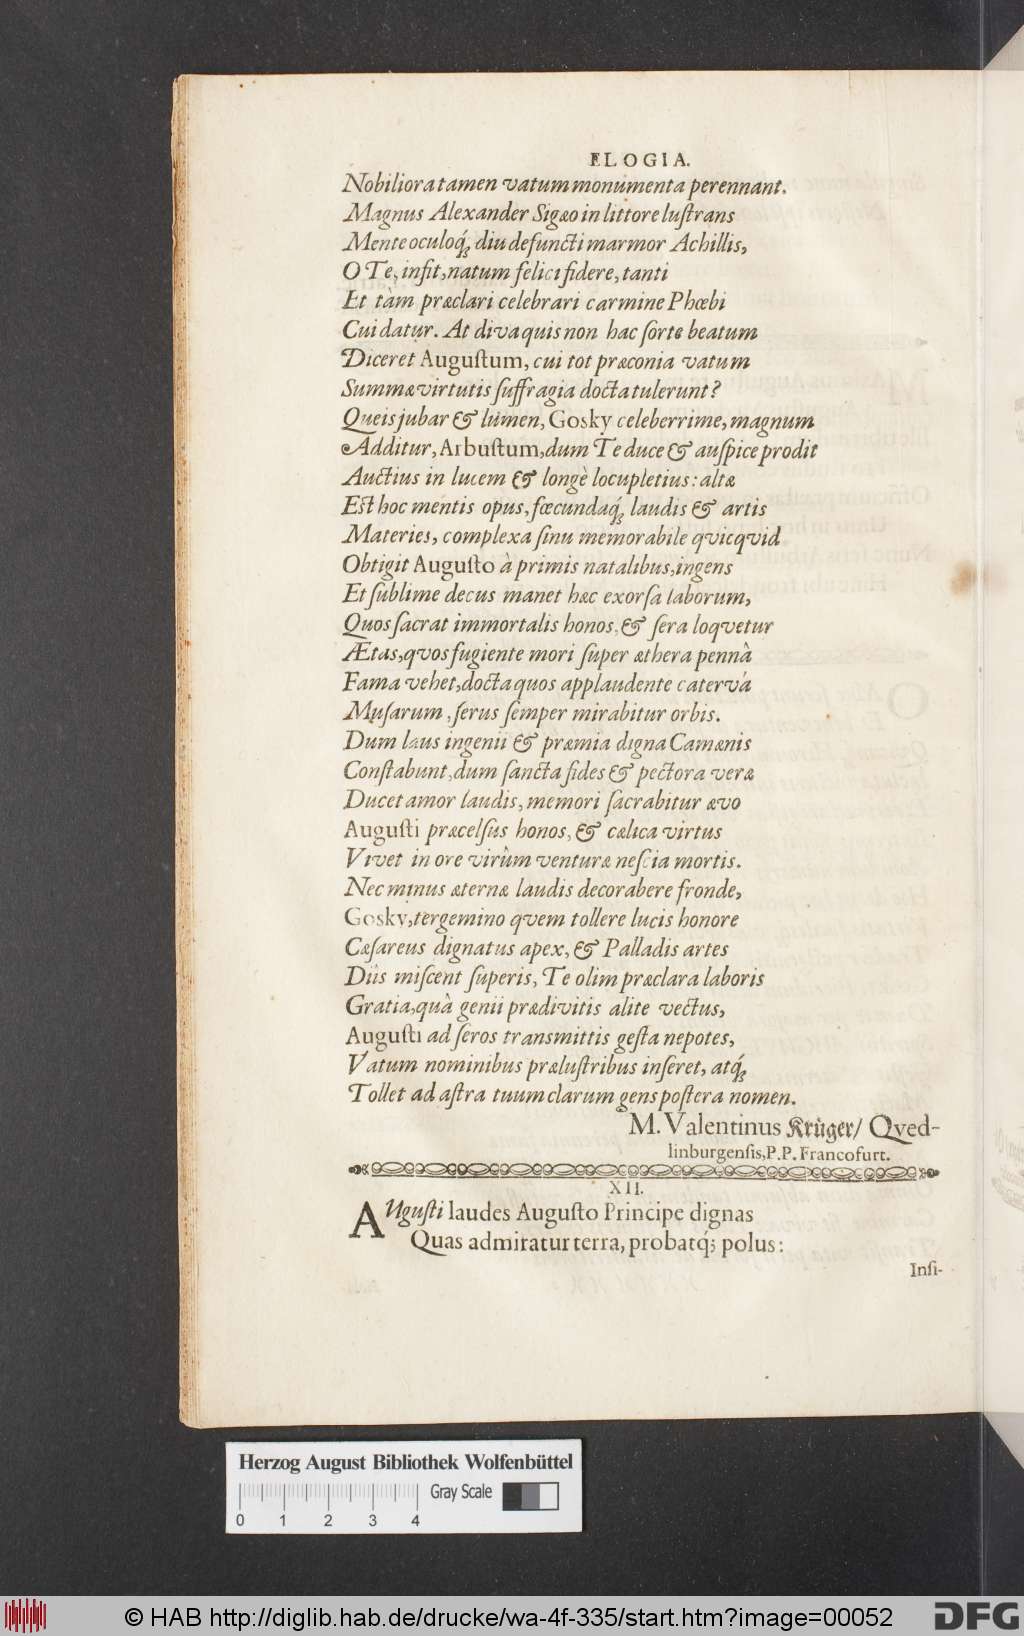 ELOGIA.
Nobiliora tamen vatum monumenta perennant.
Magnus Alexander Sigæo in littore luſtrans
Mente oculoq́; diu defuncti marmor Achillis,
O Te, inſit, natum felici ſidere, tanti
Et tàm præclari celebrari carmine Phœbi
Cui datur. At diva quis non hac ſorte beatum
Diceret Auguſtum, cui tot præconia vatum
Summæ virtutis ſuffragia docta tulerunt?
Queis jubar & lumen, Gosky celeberrime, magnum
Additur, Arbuſtum, dum Te duce & auſpice prodit
Auctius in lucem & longè locupletius: altæ
Eſt hoc mentis opus, fœcundaq́; laudis & artis
Materies, complexa ſinu memorabile qvicqvid
Obtigit Auguſto à primis natalibus, ingens
Et ſublime decus manet hæc exorſa laborum,
Quos ſacrat immortalis honos, & ſera loqvetur
Ætas, qvos fugiente mori ſuper æthera pennâ
Fama vehet, docta quos applaudente catervâ
Muſarum, ſerus ſemper mirabitur orbis.
Dum laus ingenii & præmia digna Camænis
Conſtabunt, dum ſancta fides & pectora veræ
Ducet amor laudis, memori ſacrabitur ævo
Auguſti præcelſus honos, & cælica virtus
Vivet in ore virûm venturæ neſcia mortis.
Nec minus æternæ laudis decorabere fronde,
Gosky, tergemino qvem tollere lucis honore
Cæſareus dignatus apex, & Palladis artes
Diis miſcent ſuperis, Te olim præclara laboris
Gratia, quâ genii prædivitis alite vectus,
Auguſti ad ſeros transmittis geſta nepotes,
Vatum nominibus præluſtribus inſeret, atq́;
Tollet ad aſtra tuum clarum gens poſtera nomen.
M. Valentinus Krüger/ Qved-
linburgenſis, P. P. Francofurt.
XII.
AUguſti laudes Auguſto Principe dignas
Quas admiratur terra, probatq́; polus:
Inſi-
Herzog August Bibliothek Wolfenbüttel
Gray Scale
0 1 2 3 4
© HAB http://diglib.hab.de/drucke/wa-4f-335/start.htm?image=00052
DFG